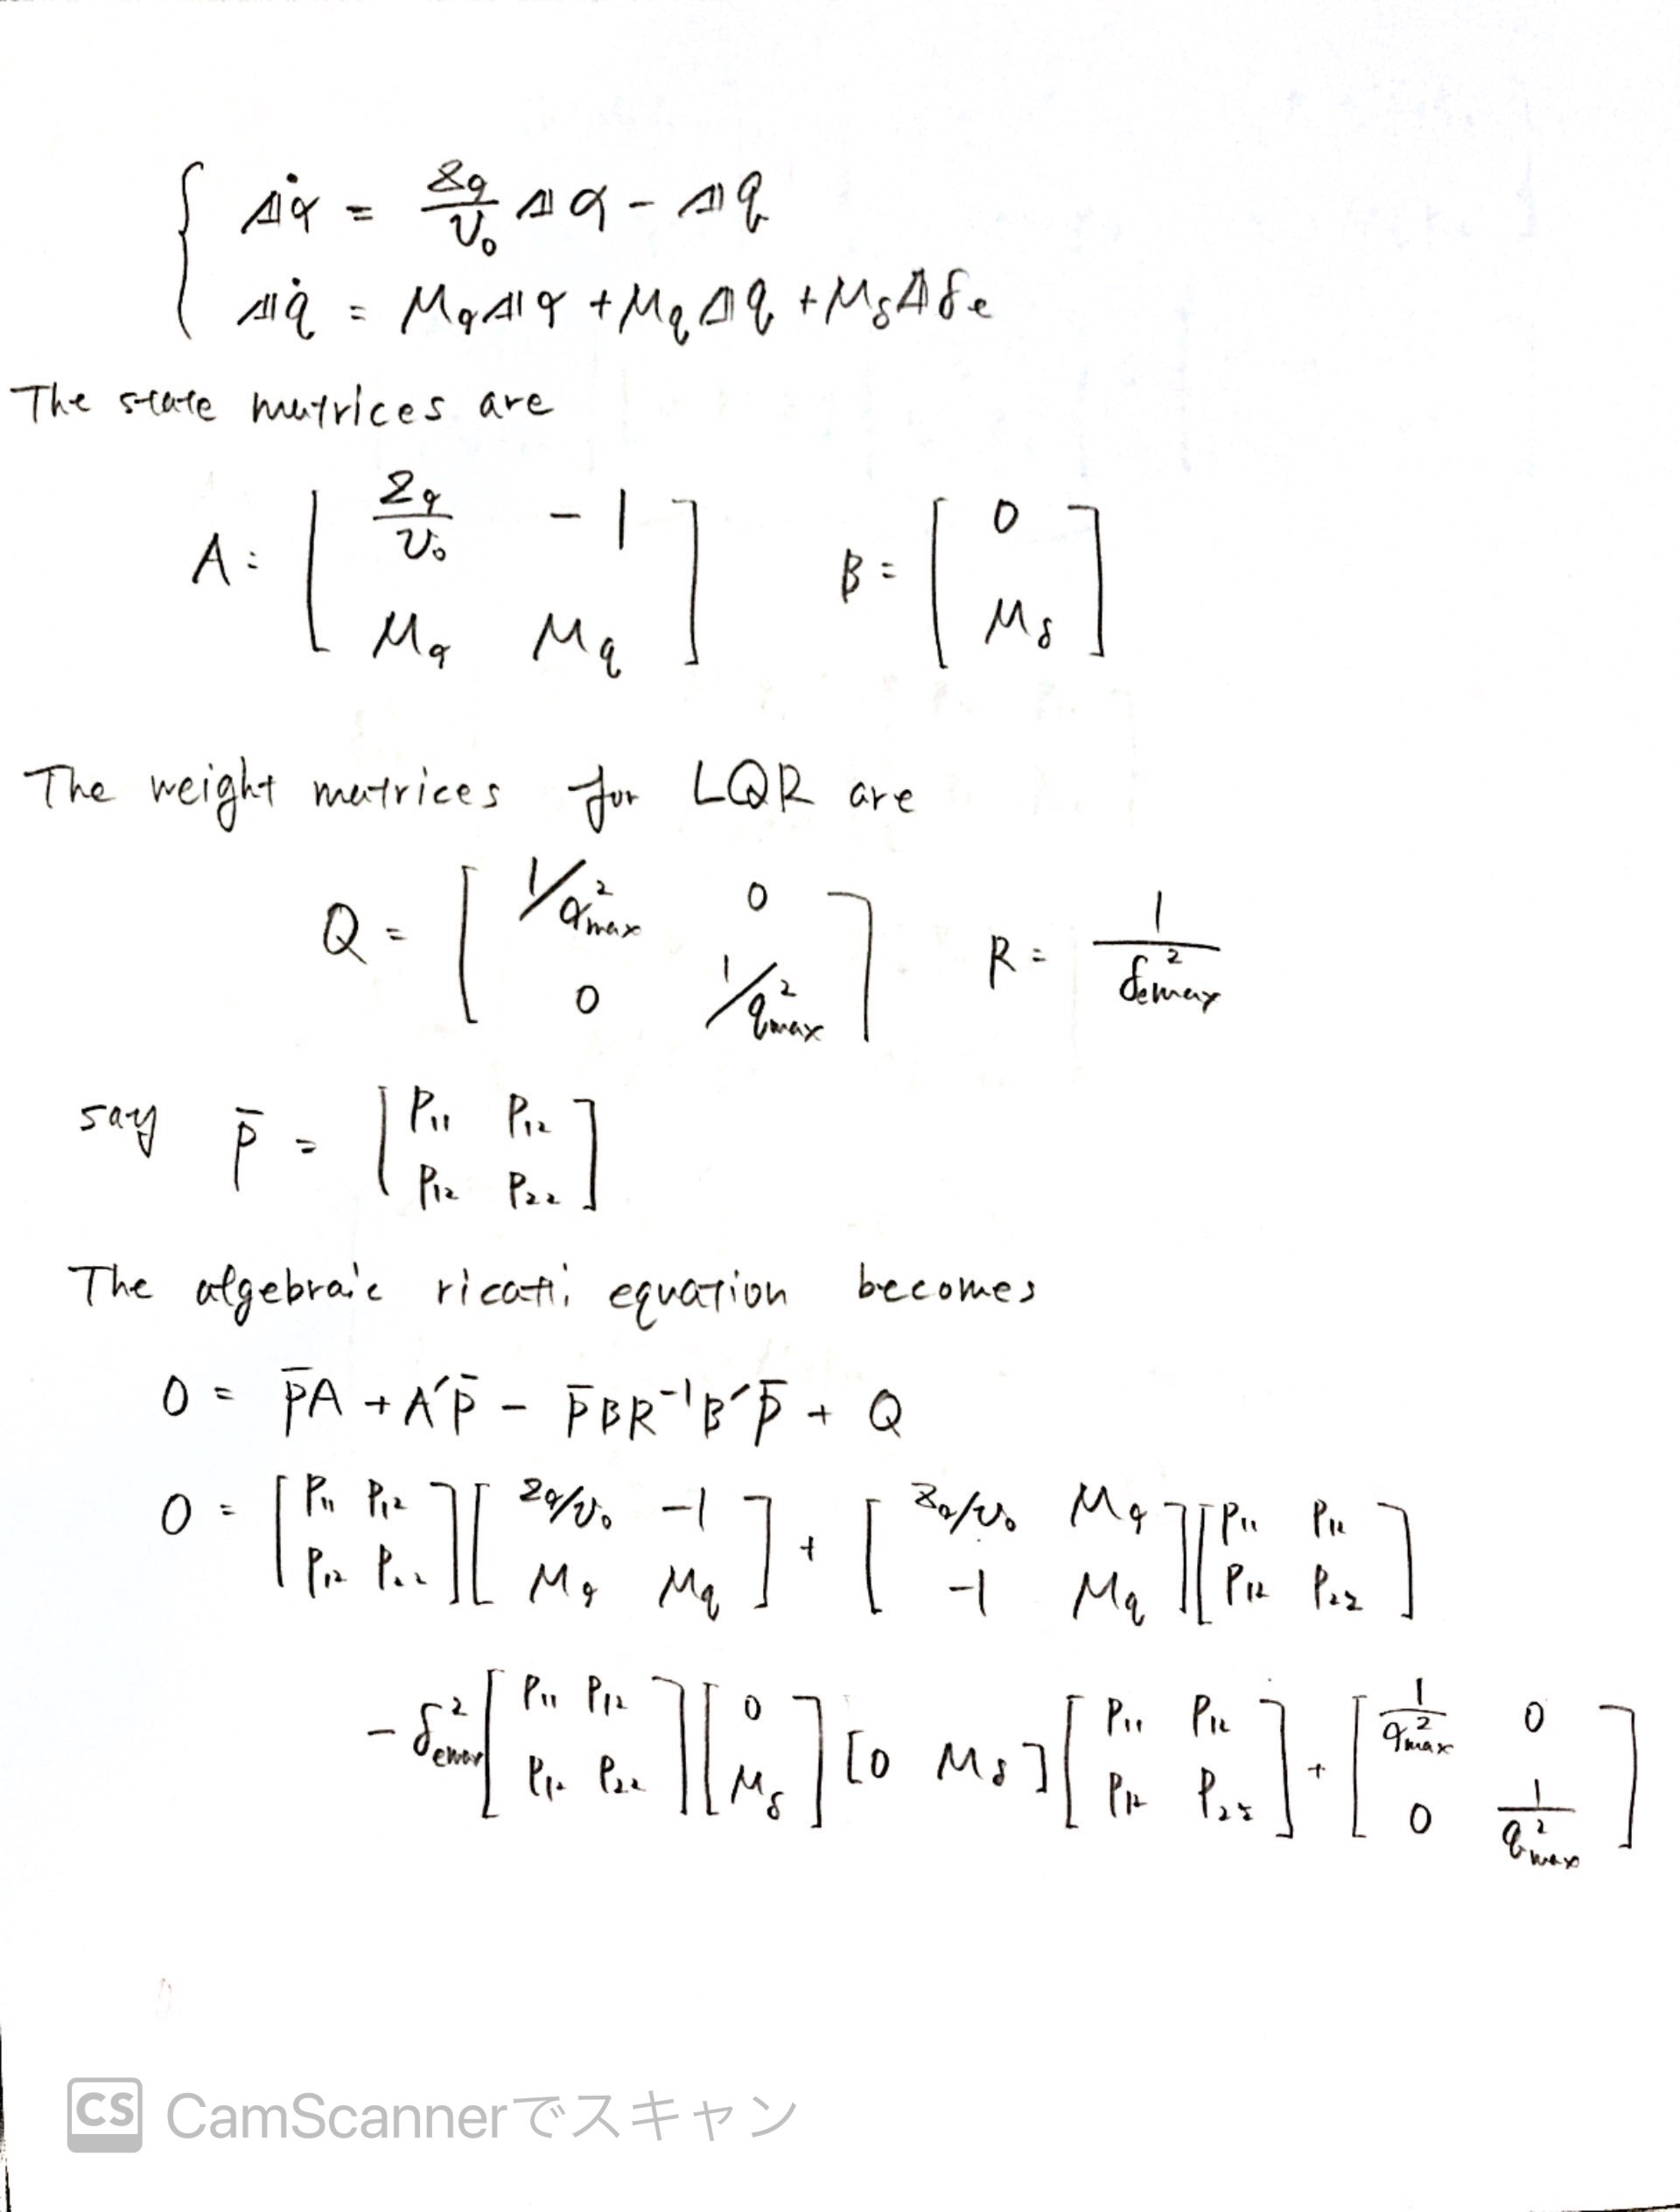 Δα̇ = Zα/V₀ Δα - Δq
Δq̇ = MαΔα + MqΔq + MδΔδe
The state matrices are
A = [ Zα/V₀ -1 ; Mα Mq ] B = [ 0 ; Mδ ]
The weight matrices for LQR are
Q = [ 1/α²max 0 ; 0 1/q²max ] R = 1/δ²emax
say P̄ = [ P₁₁ P₁₂ ; P₁₂ P₂₂ ]
The algebraic ricatti equation becomes
0 = P̄A + A'P̄ - P̄BR⁻¹B'P̄ + Q
0 = [ P₁₁ P₁₂ ; P₁₂ P₂₂ ][ Zα/V₀ -1 ; Mα Mq ] + [ Zα/V₀ Mα ; -1 Mq ][ P₁₁ P₁₂ ; P₁₂ P₂₂ ]
- δ²emax [ P₁₁ P₁₂ ; P₁₂ P₂₂ ][ 0 ; Mδ ][0 Mδ][ P₁₁ P₁₂ ; P₁₂ P₂₂ ] + [ 1/α²max 0 ; 0 1/q²max ]
CS CamScannerでスキャン